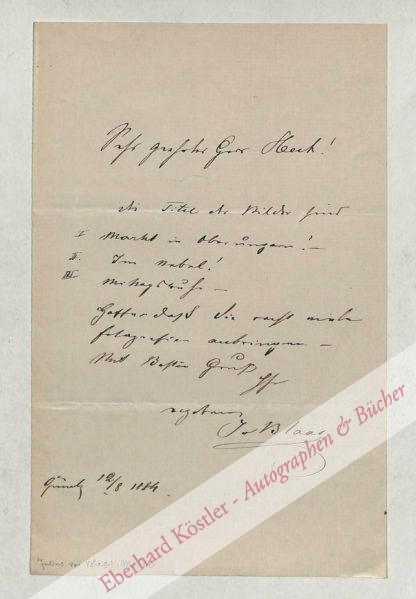 Sehr geehrter Herr Heck!
die Titel der Bilder sind
I Markt in Oberungarn! –
II. Im Nebel!
III. Mittagsruhe –
Hoffe daß Sie recht viele
fotografien anbringen –
Mit Besten Gruß
Ihr
ergebener
Jul v Blaas
12/8 1884.
Julius von Blaas
Eberhard Köstler - Autographen & Bücher